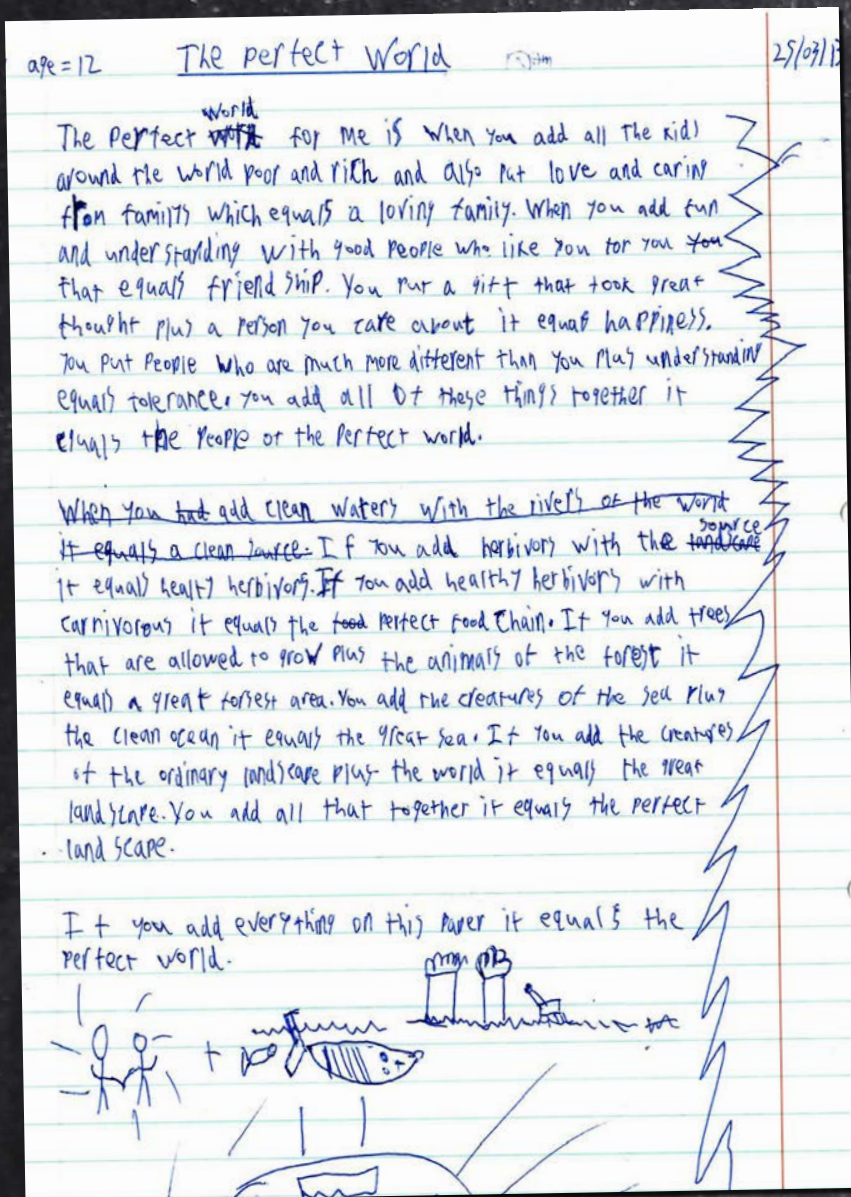 age = 12 The perfect World 25/03/13
World
The perfect for me is when you add all the kids
around the world poor and rich and also put love and caring
from familys which equals a loving family. When you add fun
and understanding with good people who like you for you you
that equals friend ship. You put a gift that took great
thought plus a person you care about it equas happiness.
You put people who are much more different than you plus understanding
equals tolerance. you add all of these things together it
equals the people of the perfect world.
When you had add clean waters with the rivers of the world
it equals a clean source. If you add herbivors with the source
landscape
it equals healty herbivors. If you add healthy herbivors with
carnivorous it equals the food perfect food chain. If you add trees
that are allowed to grow plus the animals of the forest it
equals a great forsest area. You add the creatures of the sea plus
the clean ocean it equals the great sea. If you add the creatures
of the ordinary landscape plus the world it equals the great
landscape. You add all that together it equals the perfect
land scape.
If you add everything on this paper it equals the
perfect world.
+